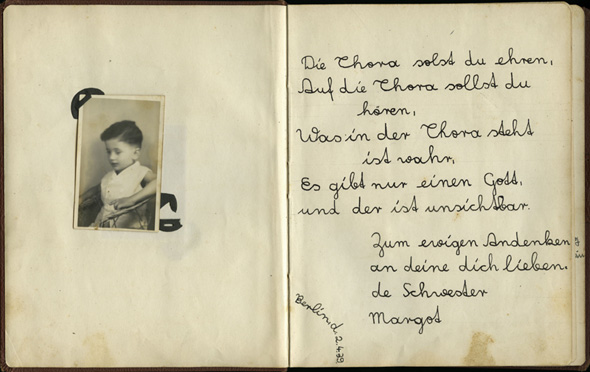 Die Thora solst du ehren,
Auf die Thora sollst du
hören,
Was in der Thora steht
ist wahr,
Es gibt nur einen Gott,
und der ist unsichtbar.
Zum ewigen Andenken
an deine dich lieben.
de Schwester
Margot
Berlin d. 2.4.39